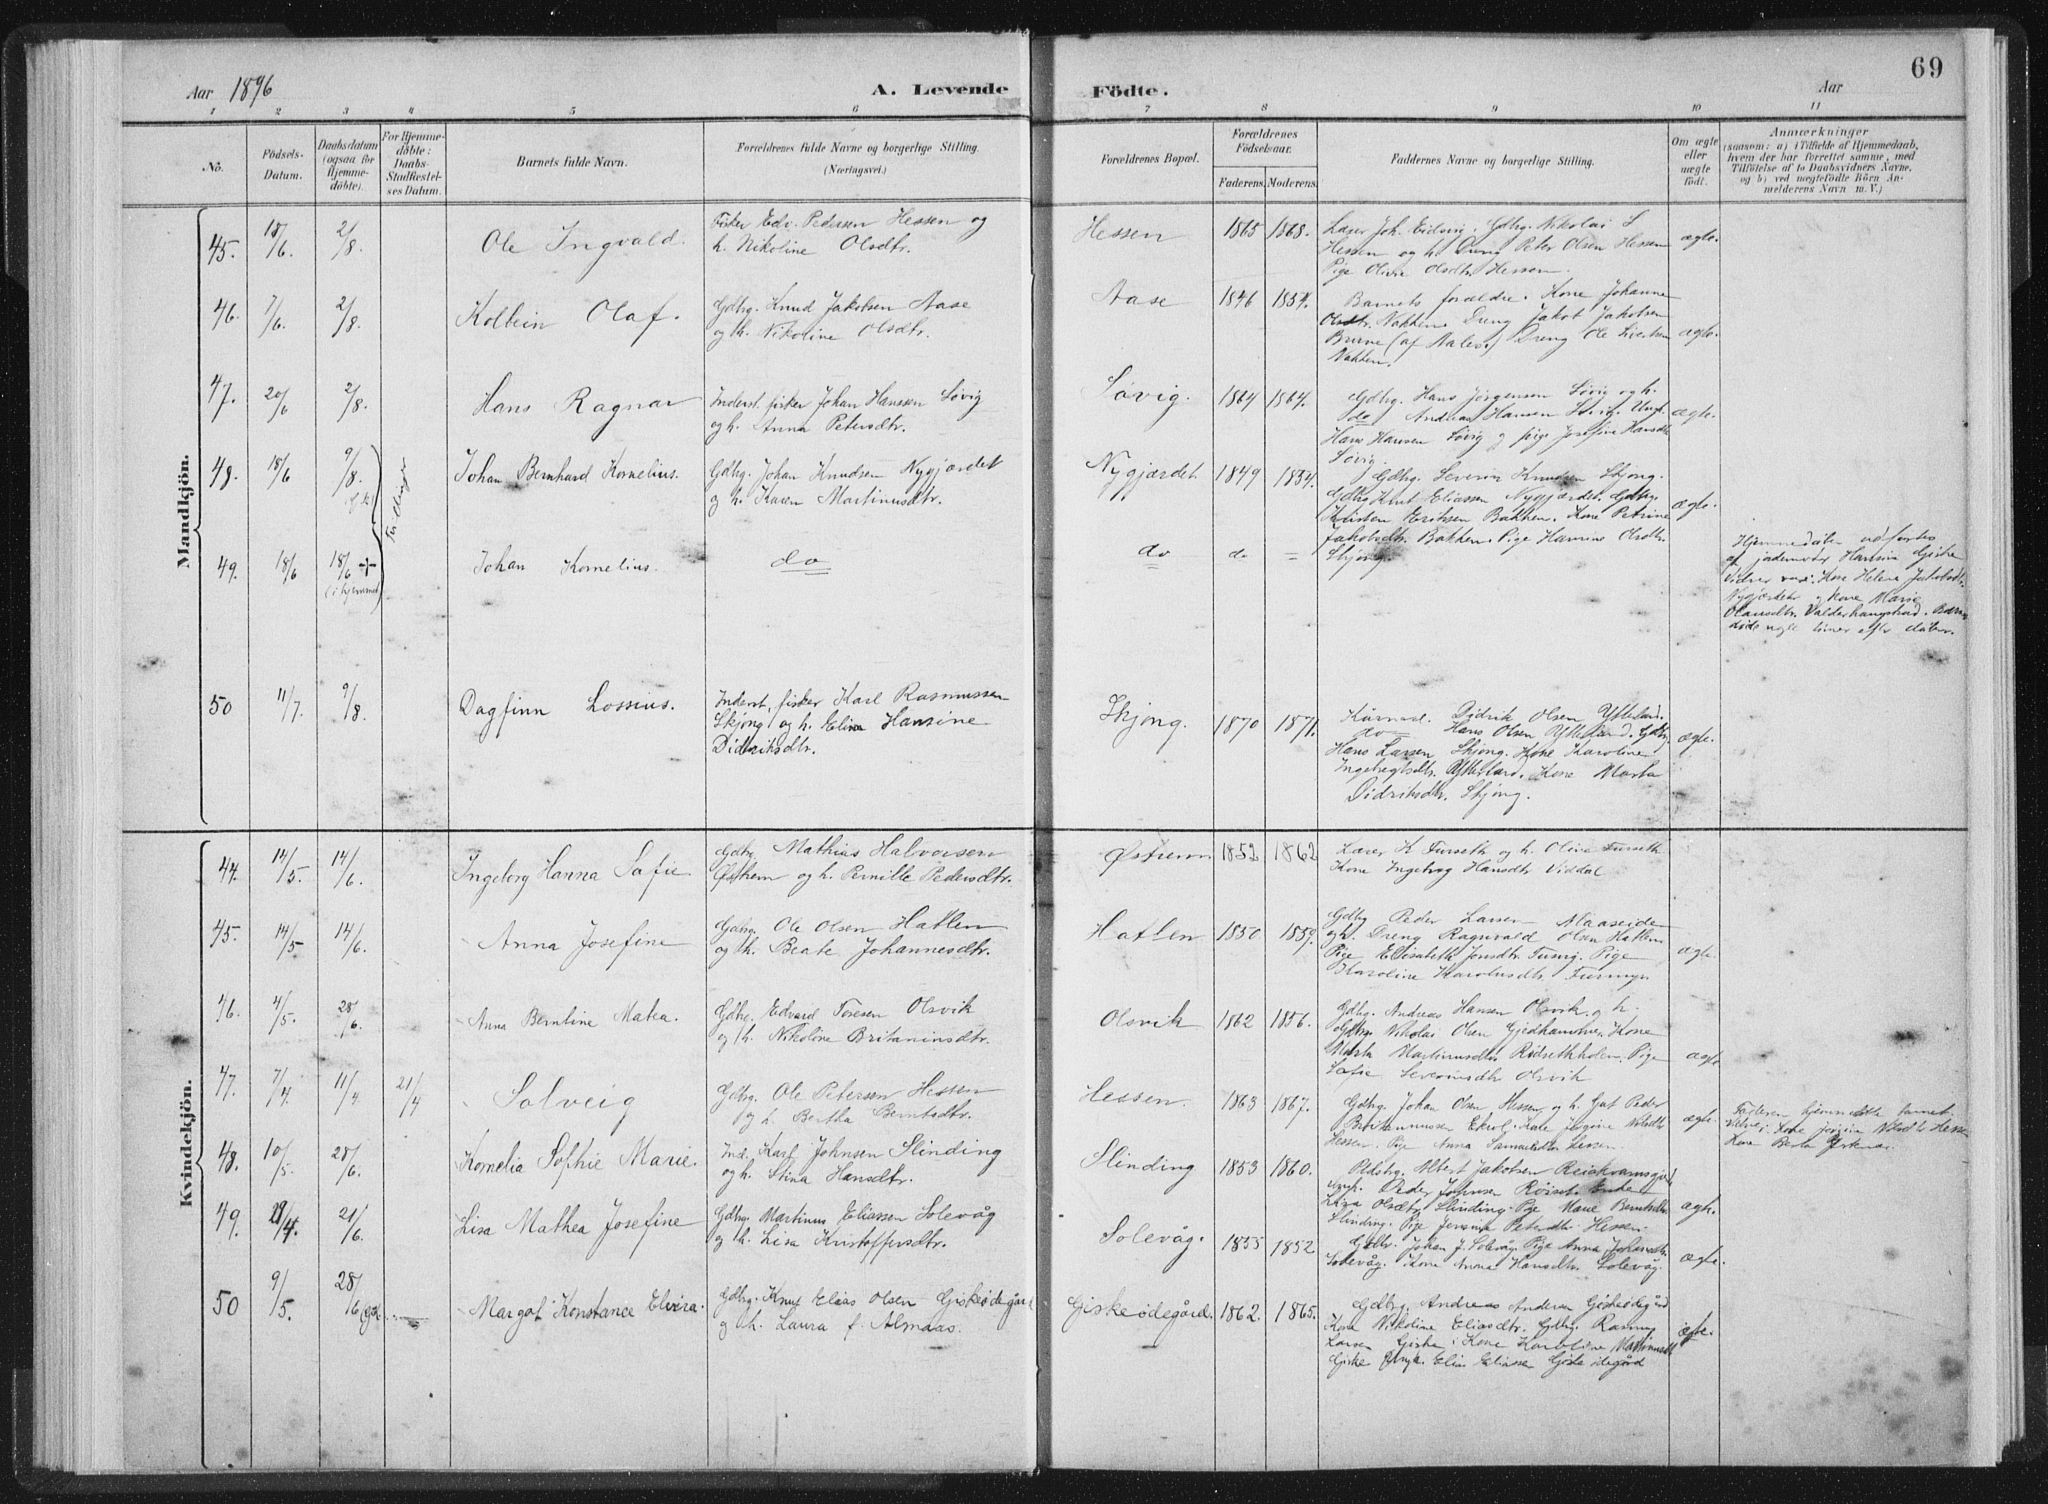 69
Aar 1896
A. Levende Födte.
Aar
1 2 3 4 5 6 7 8 9 10 11
No.
Födsels-
Datum.
Daabsdatum
(ogsaa for
Hjemme-
döbte).
For Hjemme-
döbte:
Daabs-
Stadfæstel-
ses Datum.
Barnets fulde Navn.
Forældrenes fulde Navne og borgerlige Stilling.
(Næringsvei.)
Forældrenes Bopæl.
Forældrenes
Födselsaar.
Faderens. Moderens.
Faddernes Navne og borgerlige Stilling.
Om ægte
eller
uægte
födt.
Anmærkninger
(saasom: a) i Tilfælde af Hjemmedaab,
hvem der har forrettet samme, med
Tilföielse af to Daabsvidners Navne,
og b) ved uægtefödte Börn An-
melderens Navn m. V.)
Mandkjön.
45. 18/6. 2/8. Ole Ingvald.
Fisker Edv. Pedersen Hessen og
h. Nikoline Olsdtr.
Hessen 1865 1868.
Lærer Joh. Eidsvig. Gdbg. Nikolai
Hessen og h. Dreng Peter Olsen Hessen
Pige Olivie Olsdtr Hessen.
ægte.
46. 7/6. 2/8. Kolbein Olaf.
Gdbrg. Knud Jakobsen Aase
og h. Nikoline Olsdtr.
Aase 1846 1854.
Barnets forældre. Kone Johanne
Olsdtr. Nakken. Dreng Jakob Jakobsen
Dreng Ole
Nakken.
ægte.
47. 20/6 2/8. Hans Ragnar
Inderst. fisker Johan Hanssen Søvig
og h. Anna Petersdtr.
Søvig. 1864 1864.
Gdbrg. Hans Jörgensen Søvig og h.
do Andreas Hansen Søvig. Ungk.
Hans Hansen Søvig og pige Josefine Hansdtr
Søvig.
ægte.
48. 18/6 9/8. Johan Bernhard Kornelius.
Gdbrg. Johan Knudsen Nygjærdet
og h. Karen Martinusdtr.
Nygjærdet 1849 1854.
Gdbrg. Severin Knudsen Skjong.
Gdbrg Knut Eliassen Nygjærdet. Gdbrg.
Kristen Eriksen Bakken. Kone Petrine
Jakobsdtr. Bakken. Pige Hansine Olsdtr.
Skjong.
ægte.
49. 18/6 18/6 + (i hjemmet) Johan Kornelius. do
do do =
Hjemmedåben udførtes
af jordemoder Hansine Giske
Vidner var: Kone Helene Jakobsdtr.
Nygjærdet og kone Marie
Olausdtr. Valderhaugstrand. Barnet
døde nogle timer efter dåben.
50 11/7. 9/8. Dagfinn Lossius.
Inderst, fisker Karl Rasmussen
Skjong og h. Elise Hansine
Didriksdtr.
Skjong. 1870 1871.
Kårmand. Didrik Olsen Ytteland.
do Hans Olsen Ytteland. Gdbrg.
Hans Larsen Skjong. Kone Karoline
Ingebrigtsdtr. Ytteland. Kone Marta
Didriksdtr. Skjong.
ægte.
Kvindekjön.
44. 14/5. 14/6. Ingeborg Hanna Sofie
Gdbrg. Mathias Halvorsen
Østrem og h. Pernille Pedersdtr.
Østrem 1852 1862
Lærer K Furseth og h. Olive Furseth
Kone Ingebrog Hansdtr Viddal
45. 14/5 14/6. Anna Josefine
Gdbrg. Ole Olsen Hatlen
og h. Beate Johannesdtr.
Hatlen 1850 1859.
Gdbrg Peder Larsen Maaseide
og h. Dreng Ragnvald Olsen Hatlen
Pige Elisabeth Jonsdtr. Pige
Karoline Karolusdtr.
ægte.
46. 4/5. 28/6. Anna Berntine Matea.
Gdbrg. Edvard Toresen Olsvik
og h. Nikoline Britaninsdtr.
Olsvik 1862 1856.
Gdbrg. Andreas Hansen Olsvik og h.
Gdbrg Nikolai Olsen Gjedhammer. Kone
Marta Martinusdtr Rødsethholen. Pige
Sofie Severinsdtr Olsvik
ægte
47. 7/4. 11/4 21/4 Solveig
Gdbrg. Ole Petersen Hessen
og h. Bertha Berntsdtr.
Hessen. 1863 1867.
Gdbrg. Johan Olsen Hessen og h. Peder
Hessen. Pige Anna
ægte.
48. 10/5. 28/6. Kornelia Sophie Marie.
Ind. Karl Johnsen Slinding
og h. Stina Hansdtr.
Slinding 1853 1860.
Albert Jakobsen
Ungk. Peder Johnsen Røiset. Enke
Slinding. Pige Marie Berntsdtr
Slinding. Pige Petersdtr. Hessen.
ægte.
49. 21/6. Lisa Mathea Josefine
Gdbrg. Martinus Eliassen Solevåg
og h. Lisa Kristoffersdtr.
Solevåg. 1855 1852
Gdbr. Johan J. Solevåg. Pige Anna
Solevåg. Kone Anna Hansdtr. Solevåg.
ægte.
50 9/5. 28/6 Margot Konstance Elvira.
Gdbrg. Knut Elias Olsen Giskeødegård
og h. Laura f. Almaas.
Giskeødegård. 1862. 1865.
Gdbrg. Andreas Andersen Giskeødegård
Kone Nikoline Eliasdtr. Gdbrg. Rasmus
Larsen Giske. Kone Karoline Martinusdtr
Giske Ungk. Elias Eliassen Giskeødegård
ægte.